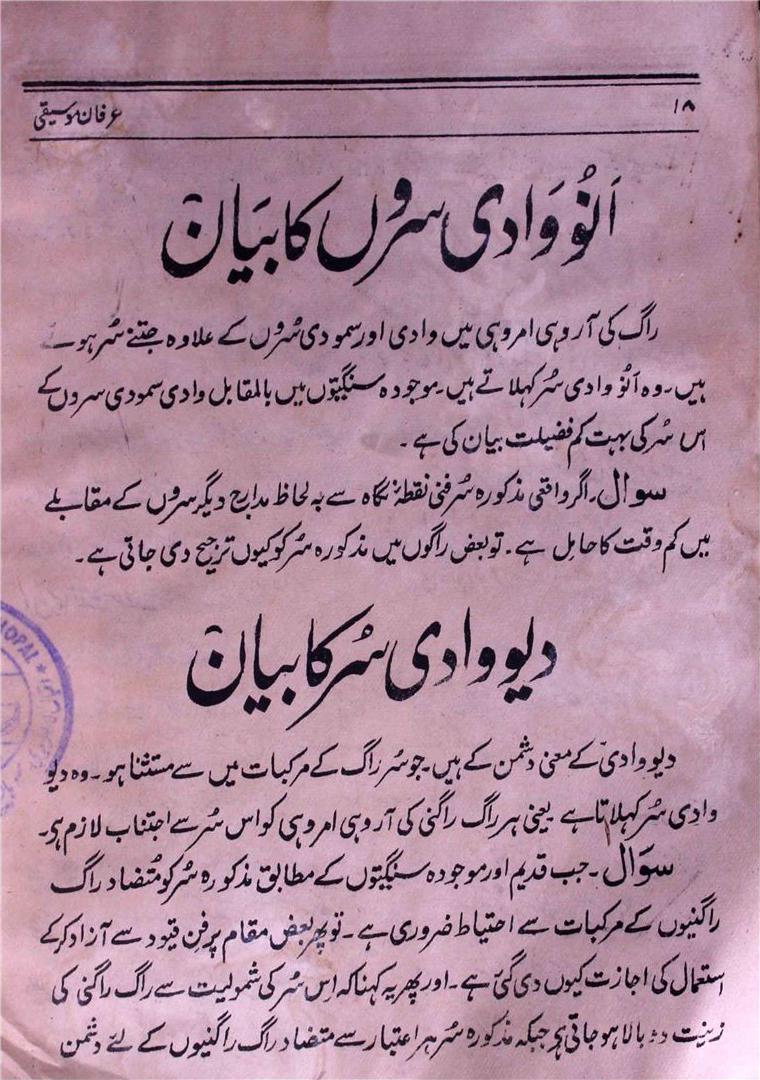 ۱۸
عرفان موسیقی
اَنُو وَادی سروں کا بیَان
راگ کی آروہی امروہی میں وادی اور سمودی سُروں کے علاوہ جتنے سُر ہوتے
ہیں۔ وہ اَنُو وادی سُر کہلاتے ہیں۔ موجودہ سنگیتوں میں بالمقابل وادی سمودی سروں کے
اس سُر کی بہت کم فضیلت بیان کی ہے ۔
سوال ۔ اگر واقعی مذکورہ سُر فنی نقطۂ نگاہ سے بہ لحاظ مدارج دیگر سروں کے مقابلے
میں کم وقت کا حامل ہے ۔ تو بعض راگوں میں مذکورہ سُر کو کیوں ترجیح دی جاتی ہے ۔
دیو وادی سُر کا بیان
دیو وادی کے معنی دشمن کے ہیں۔ جو سُر راگ کے مرکبات میں سے مستثنا ہو ۔ وہ دیو
وادی سُر کہلاتا ہے یعنی ہر راگ راگنی کی آروہی امروہی کو اس سُر سے اجتناب لازم ہو۔
سوَال ۔ جب قدیم اور موجودہ سنگیتوں کے مطابق مذکورہ سُر کو مُتضاد راگ
راگنیوں کے مرکبات سے احتیاط ضروری ہے ۔ تو پھر بعض مقام پر فن قیود سے آزاد کرکے
استعمال کی اجازت کیوں دی گئی ہے ۔ اور پھر یہ کہنا کہ اس سُر کی شمولیت سے راگ راگنی کی
زینت دوبالا ہو جاتی ہو جبکہ مذکورہ سُر ہر اعتبار سے متضاد راگ راگنیوں کے لئے دشمن